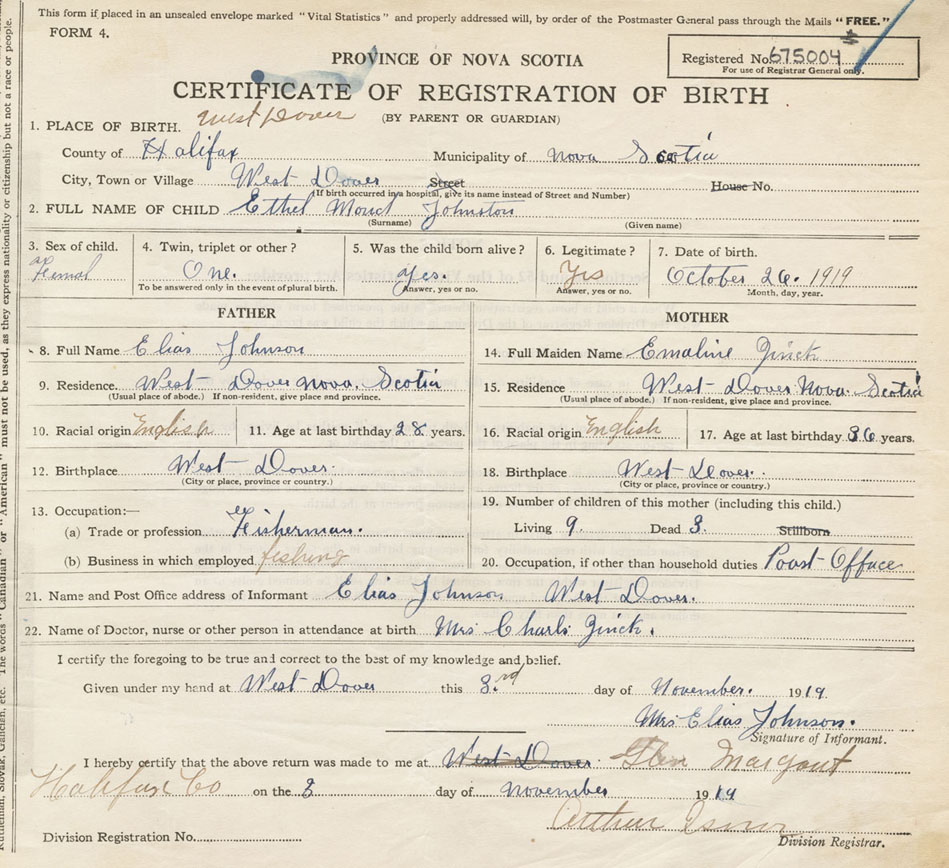 This form if placed in an unsealed envelope marked "Vital Statistics" and properly addressed will, by order of the Postmaster General pass through the Mails "FREE."
FORM 4.
PROVINCE OF NOVA SCOTIA
Registered No. 675004
For use of Registrar General only.
CERTIFICATE OF REGISTRATION OF BIRTH
(BY PARENT OR GUARDIAN)
1. PLACE OF BIRTH. West Dover
County of Halifax Municipality of Nova Scotia
City, Town or Village West Dover Street House No.
(If birth occurred in a hospital, give its name instead of Street and Number)
2. FULL NAME OF CHILD Ethel Johnston
(Surname) (Given name)
3. Sex of child. 4. Twin, triplet or other? 5. Was the child born alive? 6. Legitimate? 7. Date of birth.
Femal One. Yes. Yes October 26. 1919
To be answered only in the event of plural birth. Answer, yes or no. Answer, yes or no. Month, day, year.
FATHER
8. Full Name Elias Johnson
9. Residence. West Dover Nova. Scotia
(Usual place of abode.) If non-resident, give place and province.
10. Racial origin English 11. Age at last birthday 28 years.
12. Birthplace West Dover.
(City or place, province or country.)
13. Occupation:—
(a) Trade or profession Fisherman.
(b) Business in which employed fishing
MOTHER
14. Full Maiden Name Emaline Zinck
15. Residence West Dover Nova. Scotia
(Usual place of abode.) If non-resident, give place and province.
16. Racial origin English 17. Age at last birthday 36 years.
18. Birthplace West Dover.
(City or place, province or country.)
19. Number of children of this mother (including this child.)
Living 9. Dead 3. Stillborn
20. Occupation, if other than household duties Poast Offace
21. Name and Post Office address of Informant Elias Johnson West Dover.
22. Name of Doctor, nurse or other person in attendance at birth Mrs Charls Zinck.
I certify the foregoing to be true and correct to the best of my knowledge and belief.
Given under my hand at West Dover this 3rd day of November. 1919
Mrs Elias Johnson.
Signature of Informant.
I hereby certify that the above return was made to me at West Dover Glen Margaret
Halifax Co on the 3 day of november 1919
Arthur
Division Registration No. Division Registrar.